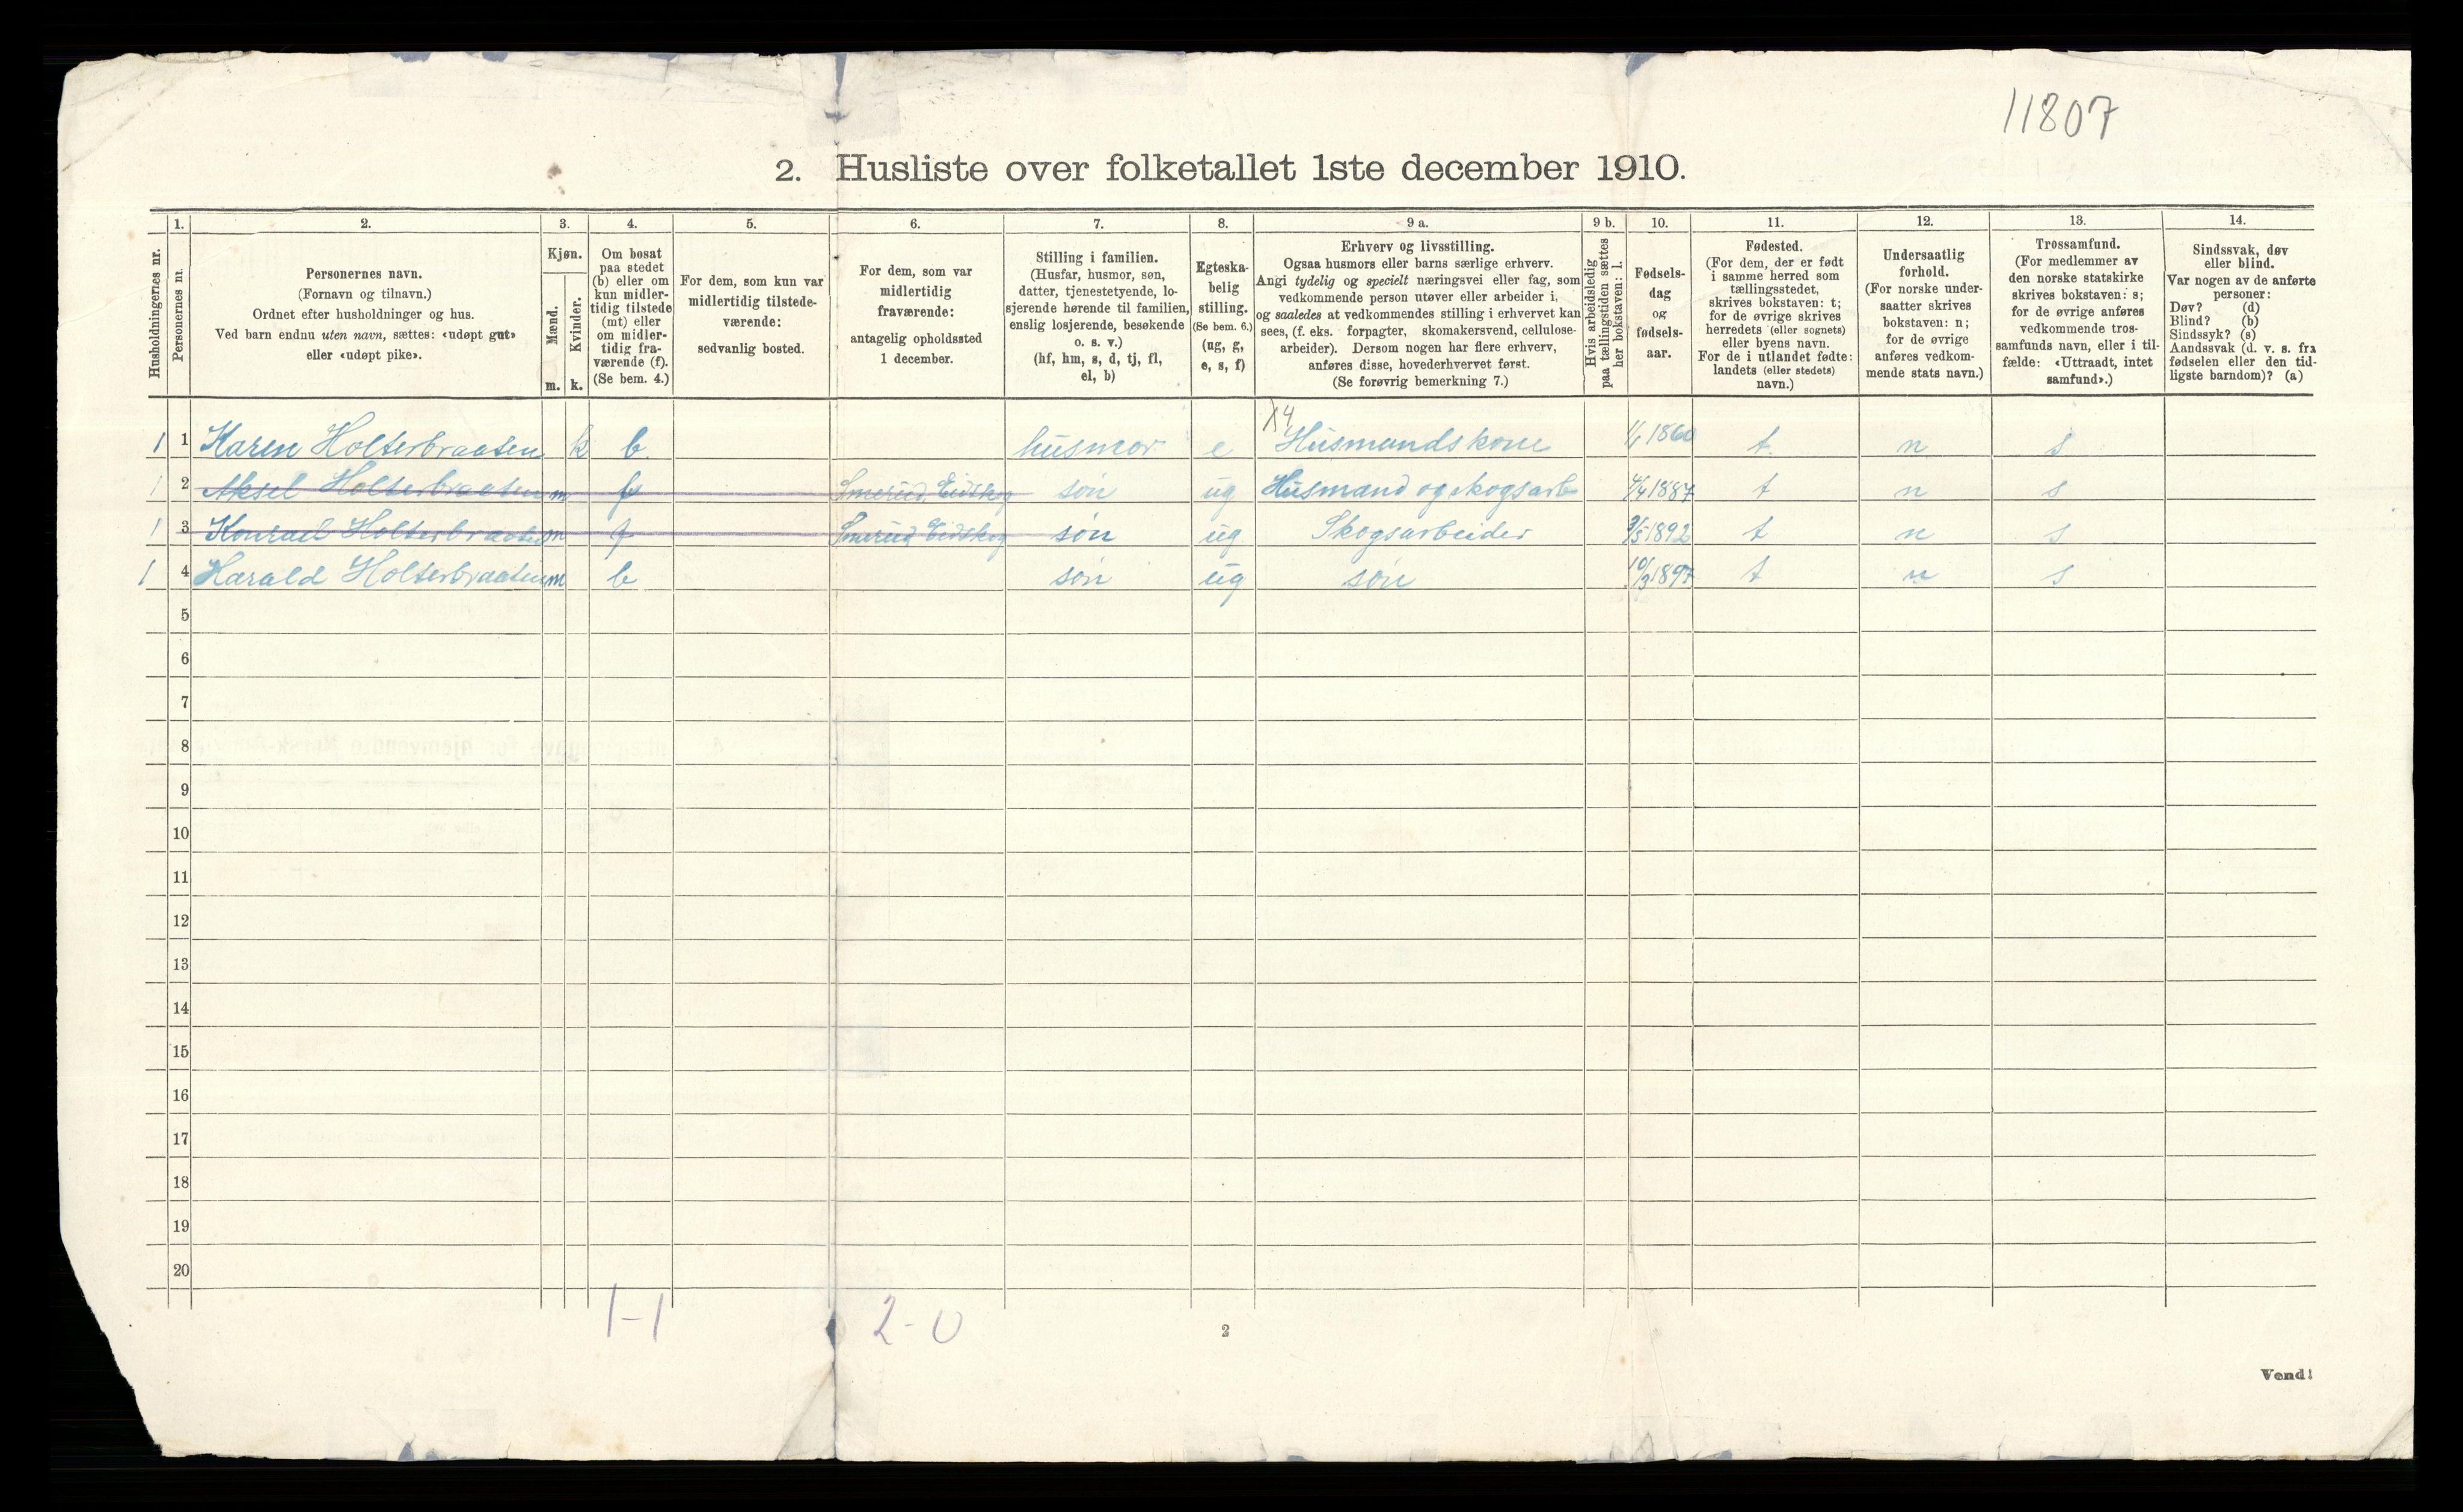 11807
2. Husliste over folketallet 1ste december 1910.
Husholdningernes nr.
1.
Personernes nr.
2.
Personernes navn.
(Fornavn og tilnavn.)
Ordnet efter husholdninger og hus.
Ved barn endnu uten navn, sættes: «udøpt gut»
eller «udøpt pike».
3.
Kjøn.
Mænd.
m.
Kvinder.
k.
4.
Om bosat
paa stedet
(b) eller om
kun midler-
tidig tilstede
(mt) eller
om midler-
tidig fra-
værende (f).
(Se bem. 4.)
5.
For dem, som kun var
midlertidig tilstede-
værende:
sedvanlig bosted.
6.
For dem, som var
midlertidig
fraværende:
antagelig opholdssted
1 december.
7.
Stilling i familien.
(Husfar, husmor, søn,
datter, tjenestetyende, lo-
sjerende hørende til familien,
enslig losjerende, besøkende
o. s. v.)
(hf, hm, s, d, tj, fl,
el, b)
8.
Egteska-
belig
stilling.
(Se bem. 6.)
(ug, g,
e, s, f)
9 a.
Erhverv og livsstilling.
Ogsaa husmors eller barns særlige erhverv.
Angi tydelig og specielt næringsvei eller fag, som
vedkommende person utøver eller arbeider i,
og saaledes at vedkommendes stilling i erhvervet kan
sees, (f. eks. forpagter, skomakersvend, cellulose-
arbeider). Dersom nogen har flere erhverv,
anføres disse, hovederhvervet først.
(Se forøvrig bemerkning 7.)
9 b.
Hvis arbeidsledig
paa tællingstiden sættes
her bokstaven: l.
10.
Fødsels-
dag
og
fødsels-
aar.
11.
Fødested.
(For dem, der er født
i samme herred som
tællingsstedet,
skrives bokstaven: t;
for de øvrige skrives
herredets (eller sognets)
eller byens navn.
For de i utlandet fødte:
landets (eller stedets)
navn.)
12.
Undersaatlig
forhold.
(For norske under-
saatter skrives
bokstaven: n;
for de øvrige
anføres vedkom-
mende stats navn.)
13.
Trossamfund.
(For medlemmer av
den norske statskirke
skrives bokstaven: s;
for de øvrige anføres
vedkommende tros-
samfunds navn, eller i til-
fælde: «Uttraadt, intet
samfund».)
14.
Sindssvak, døv
eller blind.
Var nogen av de anførte
personer:
Døv? (d)
Blind? (b)
Sindssyk? (s)
Aandssvak (d. v. s. fra
fødselen eller den tid-
ligste barndom)? (a)
X4
1 1 Karen Holterbraaten k b husmor e Husmandskone 1/1 1860 t n s
1 2 Aksel Holterbraaten m f Smerud Eidskog søn ug Husmand og skogsarb 4/4 1887 t n s
1 3 Konrad Holterbraaten m f Smerud Eidskog søn ug Skogsarbeider 3/5 1892 t n s
1 4 Harald Holterbraaten m b søn ug søn 10/3 1897 t n s
5
6
7
8
9
10
11
12
13
14
15
16
17
18
19
20
1-1 2-0
2
Vend!